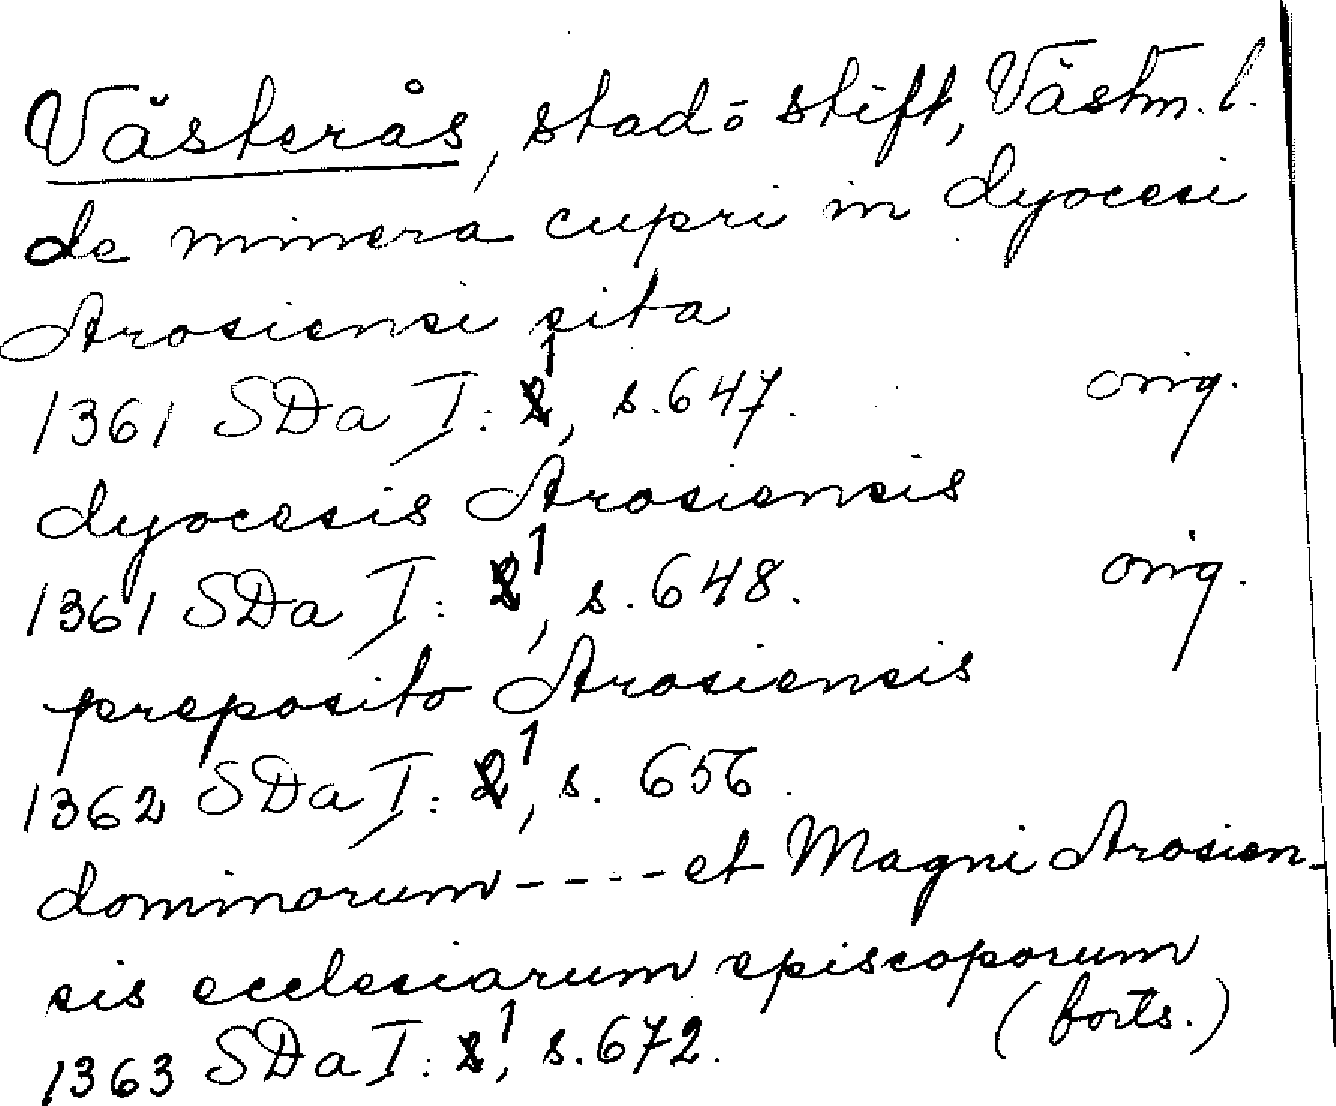 Västerås, stad o stift, Västm. l.
de minera cupri in dyocesi
Arosiensi sita
1361 SDa I: 1, s. 647. orig.
dyocesis Arosiensis
1361 SDa I: 1, s. 648. orig.
preposito Arosiensis
1362 SDa I: 1, s. 656.
dominorum - - - - et Magni Arosien-
sis ecclesiarum episcoporum
(forts.)
1363 SDa I: 1, s. 672.